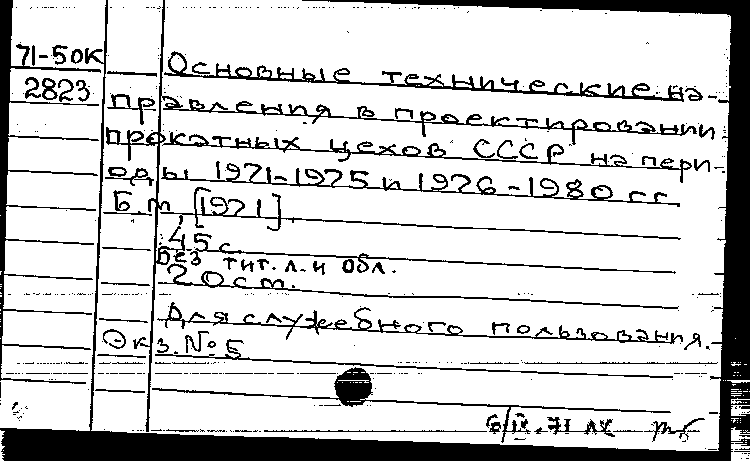 71-50К
2823
Основные технические на-
правления в проектировании
прокатных цехов СССР на пери-
оды 1971-1975 и 1976-1980 гг.
Б.м, [1971].
45 с.
Без тит. л. и обл.
20 см.
Для служебного пользования.
Экз. № 5
6/IX.71